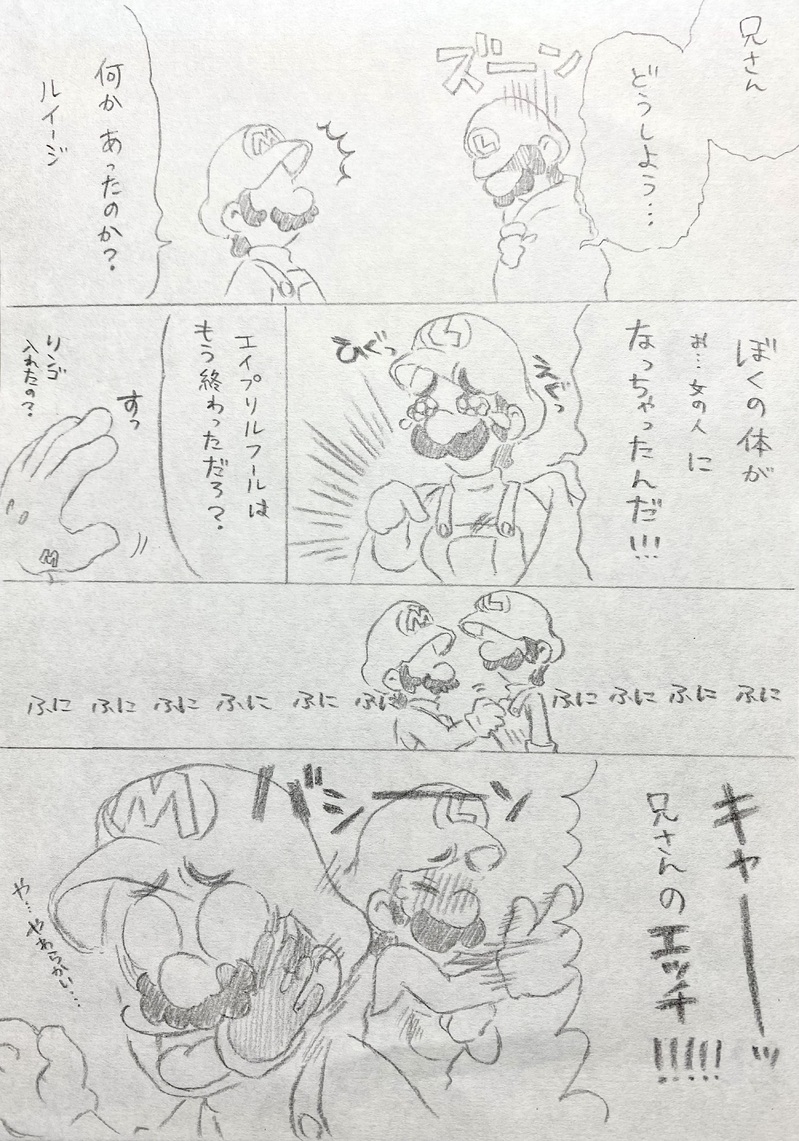 兄さん
どうしよう…
ズーン
M
L
何かあったのか?
ルイージ
ぼくの体が
お…女の人に
なっちゃったんだ!!!
ひぐっ
L
エイプリルフールは
もう終わっただろ?
すっ
リンゴ
入れたの?
M
M
L
ふに ふに ふに ふに ふに ふに ふに ふに ふに ふに
キャーーッ
兄さんのエッチ!!!!!
バシーン
L
M
や…やわらかい…